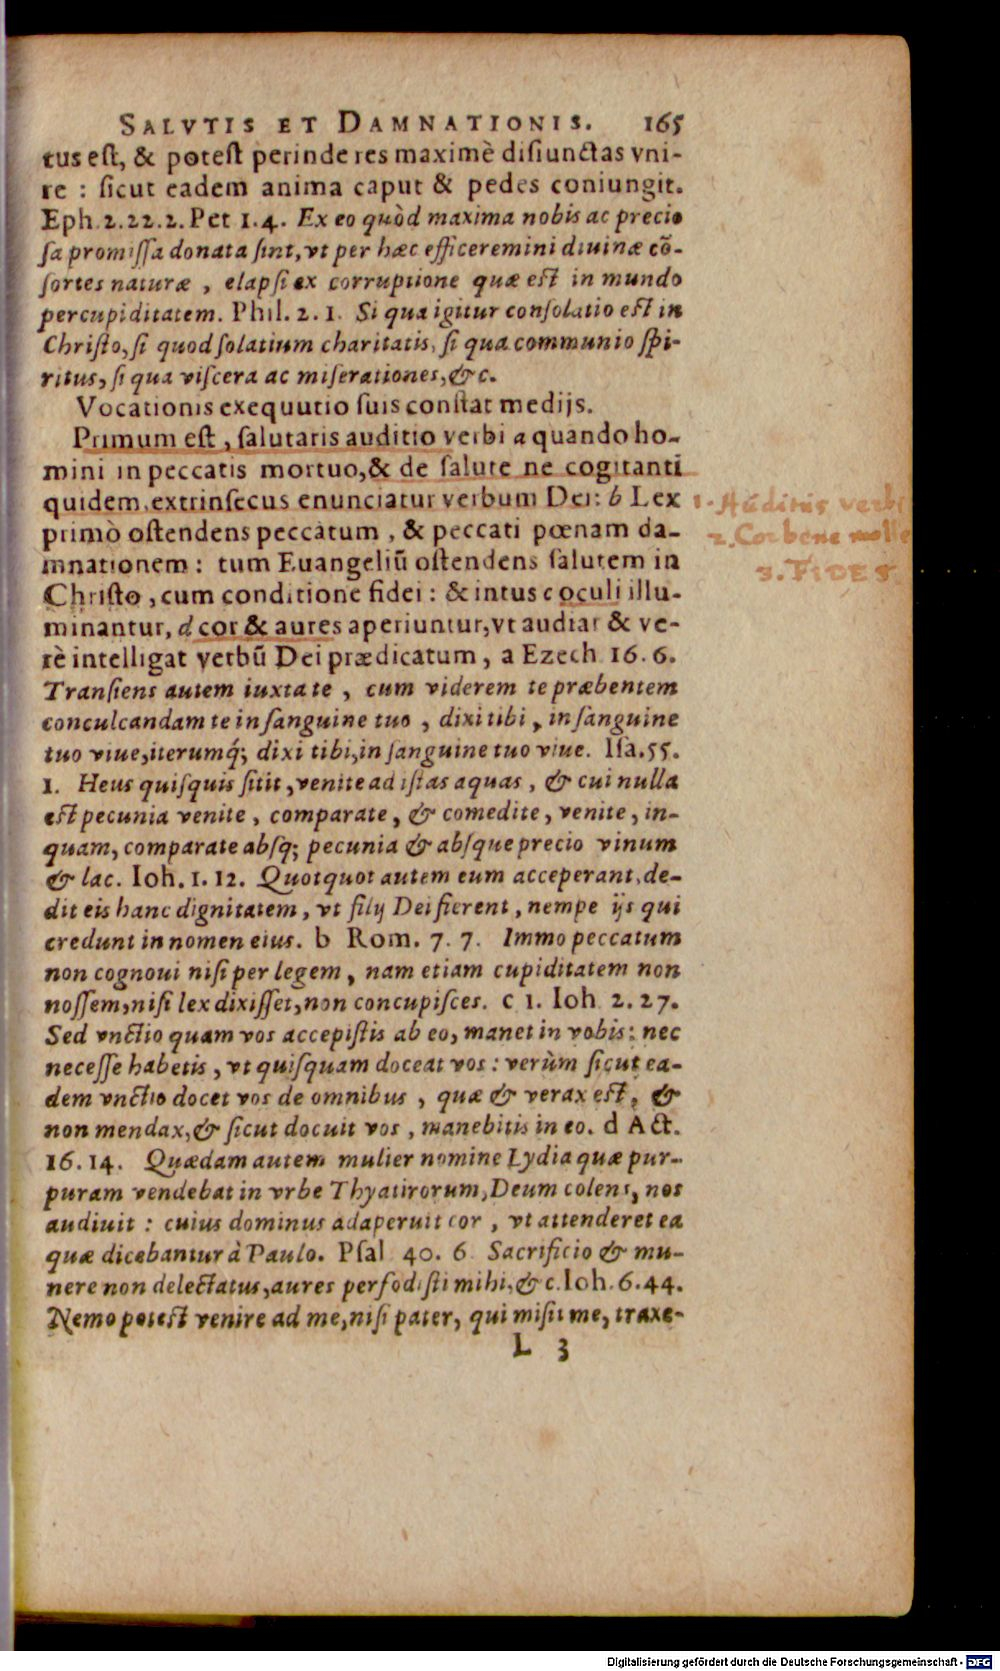 SALVTIS ET DAMNATIONIS. 165
tus eſt, & poteſt perinde res maximè diſiunctas vni-
re : ſicut eadem anima caput & pedes coniungit.
Eph. 2. 22. 2. Pet 1. 4. Ex eo quòd maxima nobis ac precio
ſa promiſſa donata ſint, vt per hæc efficeremini diuinæ cõ-
ſortes naturæ , elapſi ex corruptione quæ eſt in mundo
per cupiditatem. Phil. 2. 1. Si qua igitur conſolatio eſt in
Chriſto, ſi quod ſolatium charitatis, ſi qua communio ſpi-
ritus, ſi qua viſcera ac miſerationes, &c.
Vocationis exequutio ſuis conſtat medijs.
Primum eſt , ſalutaris auditio verbi a quando ho-
mini in peccatis mortuo, & de ſalute ne cogitanti
quidem, extrinſecus enunciatur verbum Dei: b Lex
primò oſtendens peccatum , & peccati pœnam da-
mnationem : tum Euangeliũ oſtendens ſalutem in
Chriſto , cum conditione fidei : & intus c oculi illu-
minantur, d cor & aures aperiuntur, vt audiat & ve-
rè intelligat verbũ Dei prædicatum , a Ezech 16. 6.
Tranſiens autem iuxta te , cum viderem te præbentem
conculcandam te in ſanguine tuo , dixi tibi , in ſanguine
tuo viue, iterumq́; dixi tibi, in ſanguine tuo viue. Iſa. 55.
1. Heus quiſquis ſitit , venite ad iſtas aquas , & cui nulla
eſt pecunia venite , comparate , & comedite , venite , in-
quam, comparate abſq; pecunia & abſque precio vinum
& lac. Ioh. 1. 12. Quotquot autem eum acceperant, de-
dit eis hanc dignitatem , vt filij Dei fierent , nempe ijs qui
credunt in nomen eius. b Rom. 7. 7. Immo peccatum
non cognoui niſi per legem , nam etiam cupiditatem non
noſſem, niſi lex dixiſſet, non concupiſces. c 1. Ioh 2. 27.
Sed vnctio quam vos accepiſtis ab eo, manet in vobis: nec
neceſſe habetis , vt quiſquam doceat vos : verùm ſicut ea-
dem vnctio docet vos de omnibus , quæ & verax eſt, &
non mendax, & ſicut docuit vos , manebitis in eo. d Act.
16. 14. Quædam autem mulier nomine Lydia quæ pur-
puram vendebat in vrbe Thyatirorum, Deum colens, nos
audiuit : cuius dominus adaperuit cor , vt attenderet ea
quæ dicebantur à Paulo. Pſal 40. 6 Sacrificio & mu-
nere non delectatus, aures perfodiſti mihi, &c. Ioh. 6. 44.
Nemo poteſt venire ad me, niſi pater, qui miſit me, traxe-
L 3
1. Auditus verbi
2. Cor bene molle
3. FIDES.
Digitalisierung gefördert durch die Deutsche Forschungsgemeinschaft - DFG